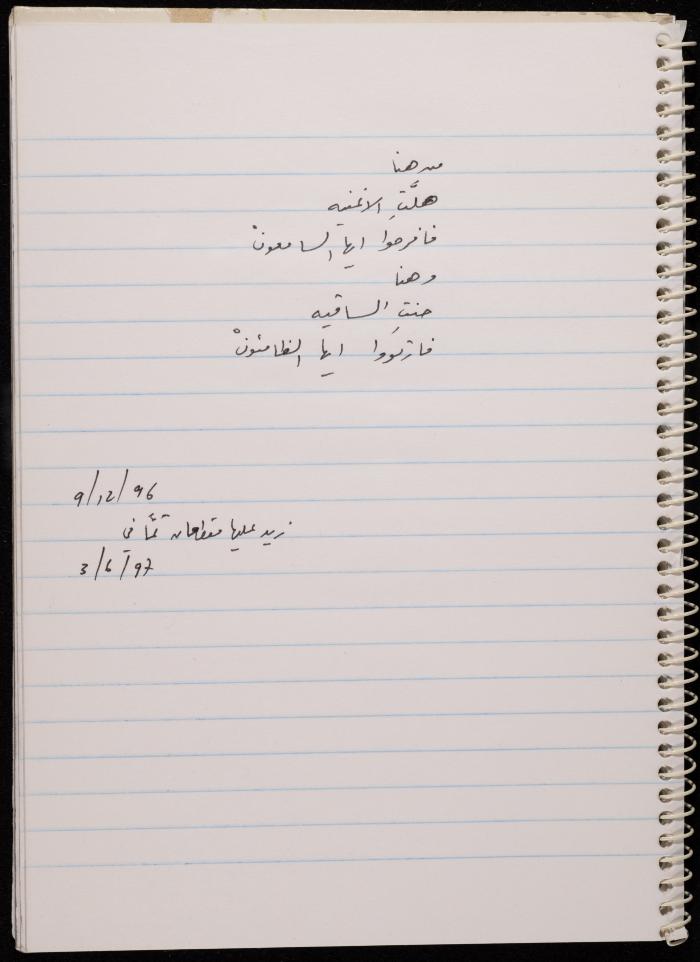 من هنا
هلَّتِ الاغنيه
فافرحوا ايها السامعونْ
وهنا
حنتِ الساقيه
فارتووا ايها الظامئونْ
9/12/96
زيد عليها مقطعان تمَّا في
3/6/97